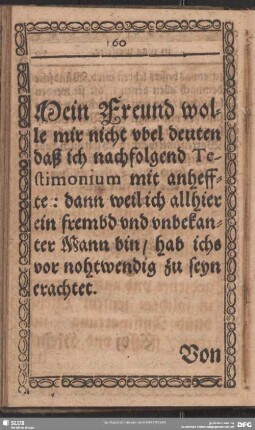 160
Mein Freund wol-
le mir nicht vbel deuten
daß ich nachfolgend Te-
stimonium mit anheff-
te: dann weil ich allhier
ein frembd vnd vnbekan-
ter Mann bin/ hab ichs
vor nohtwendig zu seyn
erachtet.
Von
SLUB
DFG